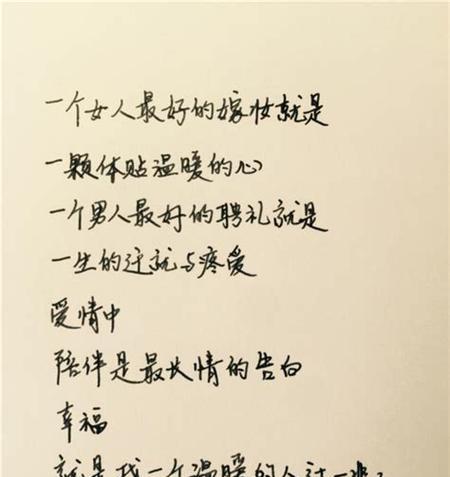 一个女人最好的嫁妆就是
一颗体贴温暖的心
一个男人最好的聘礼就是
一生的迁就与疼爱
爱情中
陪伴是最长情的告白
幸福
就是找一个温暖的人过一辈子